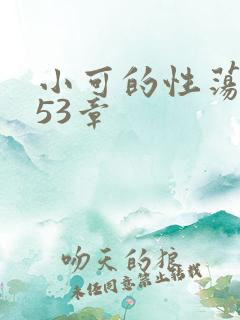 小可的性荡
53章
吻天的狼
未经同意禁止转载